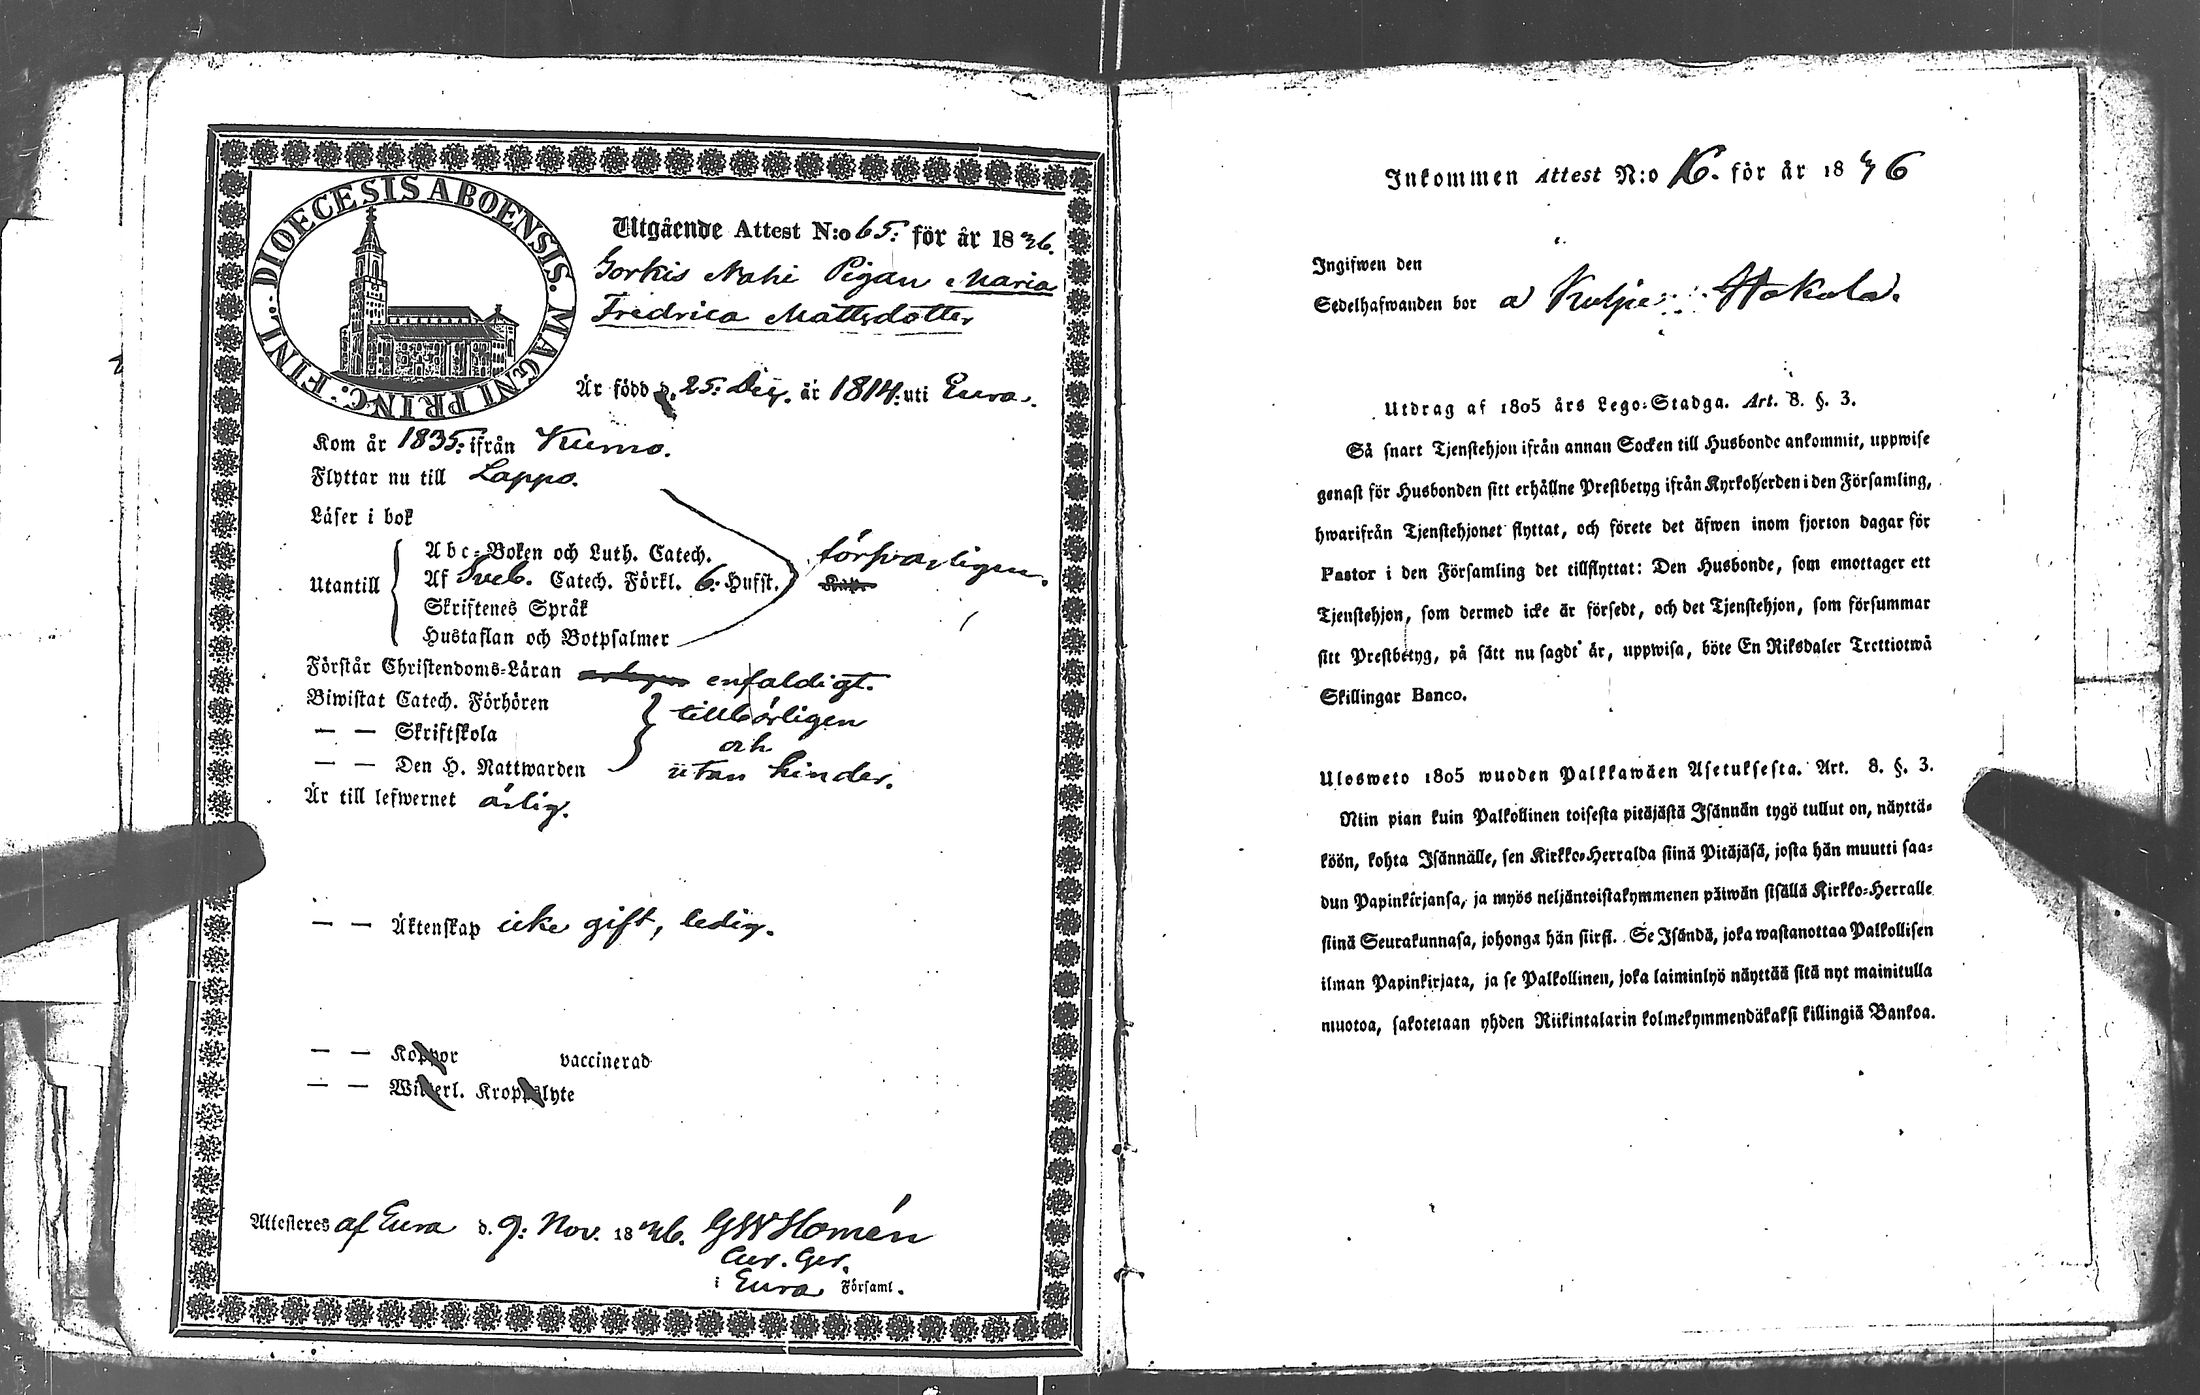 DIOECESIS ABOENSIS. MAGNI PRINC: FINL.
Utgående Attest N:o 65: för år 1836.
Gorkis Nahi Pigan Maria
Fredrica Mattsdotter
Är född d. 25: Dec. år 1814: uti Eura.
Kom år 1835: ifrån Kumo.
Flyttar nu till Lappo.
Läser i bok
Utantill
Abc-Boken och Luth. Catech.
Af Sveb. Catech. Förkl. 6: Hufst.
Skriftenes Språk
Hustaflan och Botpsalmer
försvarligen.
Förstår Christendoms-Läran enfaldigt.
Biwistat Catech. Förhören
— — Skriftskola
— — Den H. Nattwarden
tillbörligen
och
utan hinder.
Är till lefwernet ärlig.
— — Äktenskap icke gift, ledig.
— — Koppor vaccinerad
— — Witterl. Kroppslyte
Attesteres af Eura d. 9: Nov. 1836. GW Homén
Cur. Ger.
i Eura Församl.
Inkommen Attest N:o 16. för år 1836
Ingifwen den
Sedelhafwanden bor a
Utdrag af 1805 års Lego-Stadga. Art. 8. §. 3.
Så snart Tjenstehjon ifrån annan Socken till Husbonde ankommit, uppwise
genast för Husbonden sitt erhållne Prestbetyg ifrån Kyrkoherden i den Församling,
hwarifrån Tjenstehjonet flyttat, och förete det äfwen inom fjorton dagar för
Pastor i den Församling det tillflyttat: Den Husbonde, som emottager ett
Tjenstehjon, som dermed icke är försedt, och det Tjenstehjon, som försummar
sitt Prestbetyg, på sätt nu sagdt är, uppwisa, böte En Riksdaler Trettiotwå
Skillingar Banco.
Ulosweto 1805 wuoden Palkkawäen Asetuksesta. Art. 8. §. 3.
Niin pian kuin Palkollinen toisesta pitäjästä Isännän tygö tullut on, näyttä-
köön, kohta Isännälle, sen Kirkko-Herralda siinä Pitäjäsä, josta hän muutti saa-
dun Papinkirjansa, ja myös neljäntoistakymmenen päiwän sisällä Kirkko-Herralle
siinä Seurakunnasa, johonga hän siirsi. Se Isändä, joka wastanottaa Palkollisen
ilman Papinkirjata, ja se Palkollinen, joka laiminlyö näyttää sitä nyt mainitulla
muotoa, sakotetaan yhden Riikintalarin kolmekymmendäkaksi killingiä Bankoa.